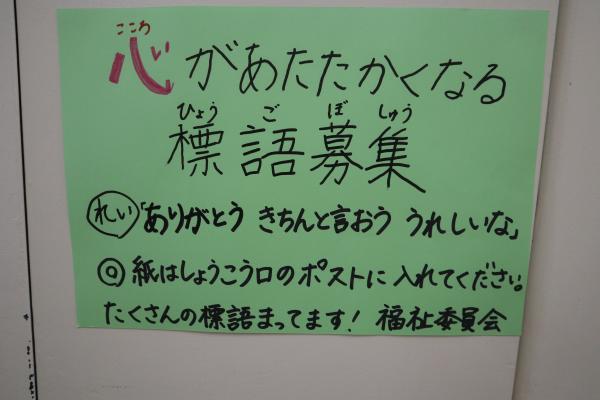 こころ
心があたたかくなる
ひょう ご ぼ しゅう
標語募集
れい「ありがとう きちんと言おう うれしいな」
◎紙はしょうこう口のポストに入れてください。
たくさんの標語まってます! 福祉委員会